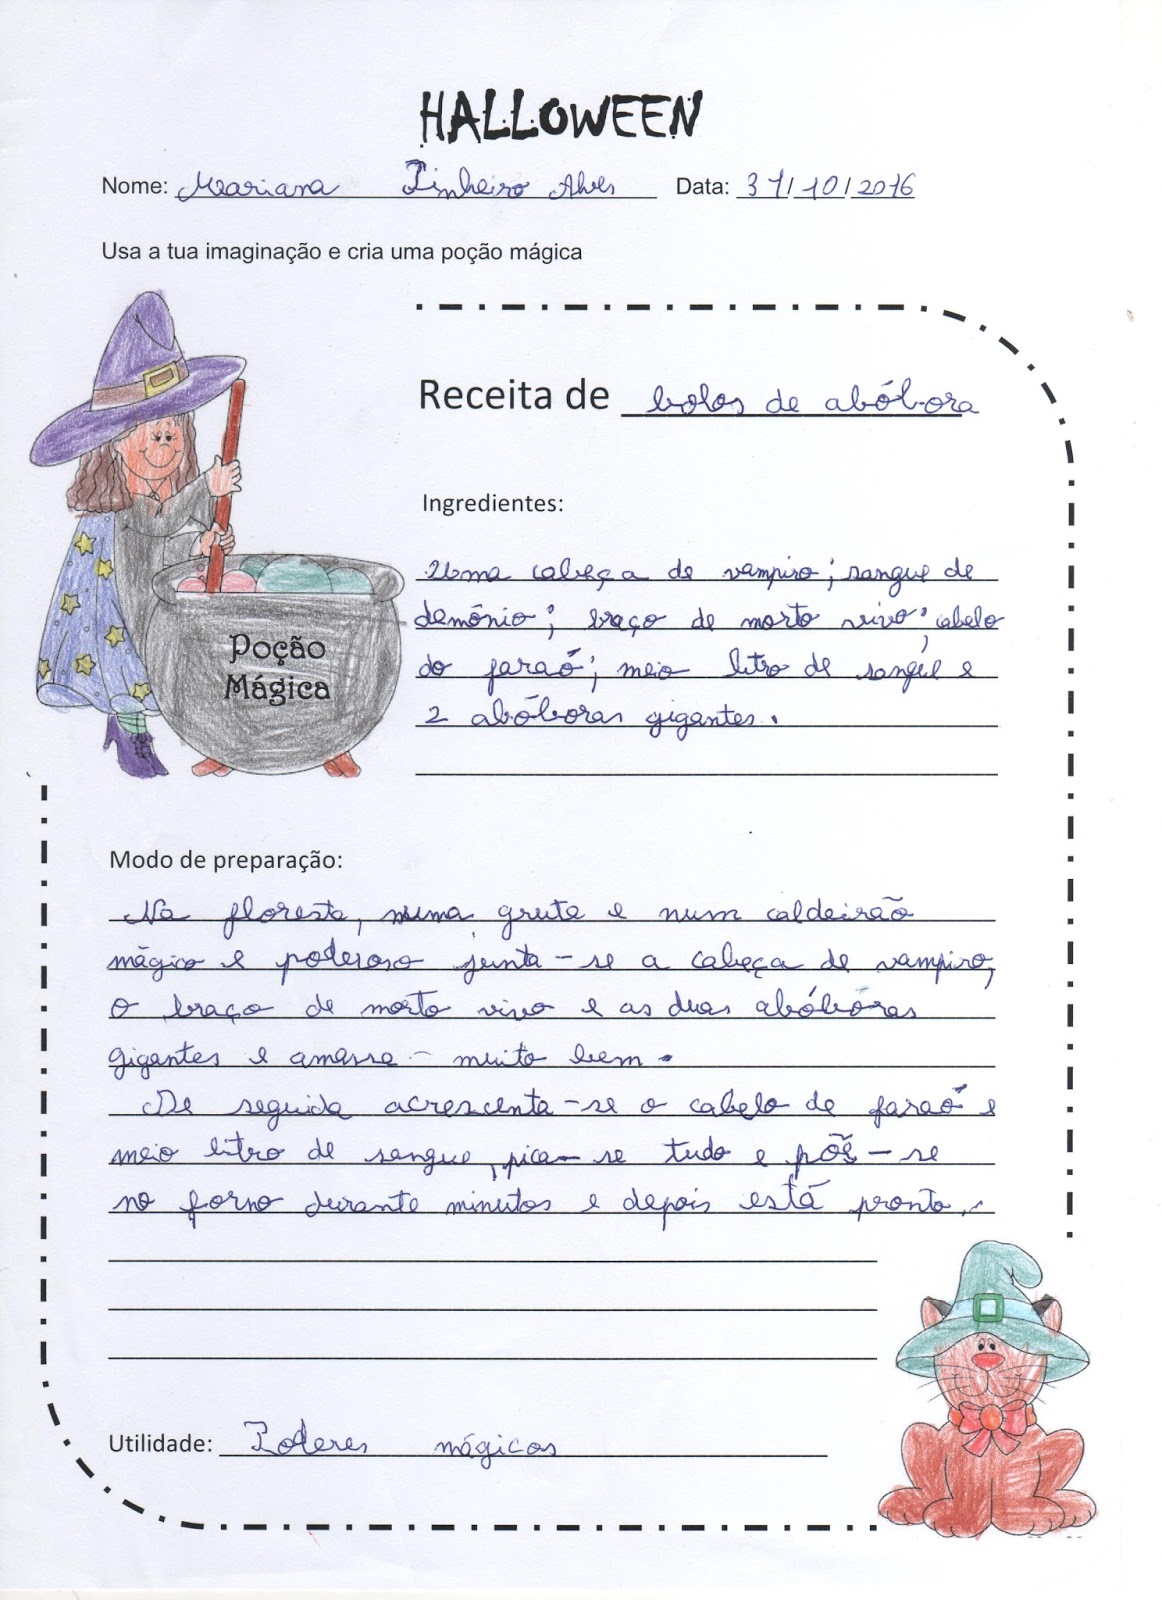 HALLOWEEN
Nome: Mariana Pinheiro Alves Data: 31/10/2016
Usa a tua imaginação e cria uma poção mágica
Receita de bolos de abóbora
Ingredientes:
Uma cabeça de vampiro; sangue de
demônio; braço de morto vivo; cabelo
do faraó; meio litro de sangue e
2 abóboras gigantes.
Poção
Mágica
Modo de preparação:
Na floresta, numa gruta e num caldeirão
mágico e poderoso junta-se a cabeça de vampiro,
o braço de morto vivo e as duas abóboras
gigantes e amassa- muito bem.
De seguida acrescenta-se o cabelo de faraó e
meio litro de sangue, pica-se tudo e põe-se
no forno durante minutos e depois está pronto.
Utilidade: Poderes mágicos